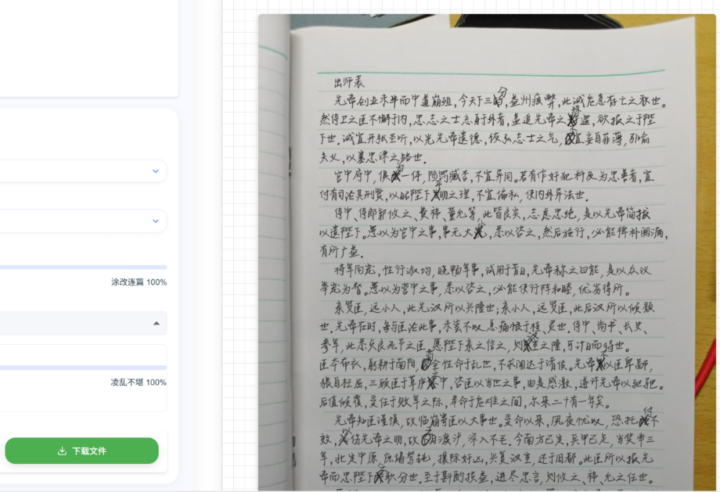 涂改连篇 100%
凌乱不堪 100%
下载文件
出师表
先帝创业未半而中道崩殂,今天下三分,益州疲弊,此诚危急存亡之秋也。
然侍卫之臣不懈于内,忠志之士忘身于外者,盖追先帝之殊遇,欲报之于陛
下也。诚宜开张圣听,以光先帝遗德,恢弘志士之气,不宜妄自菲薄,引喻
失义,以塞忠谏之路也。
宫中府中,俱为一体,陟罚臧否,不宜异同。若有作奸犯科及为忠善者,宜
付有司论其刑赏,以昭陛下平明之理,不宜偏私,使内外异法也。
侍中、侍郎郭攸之、费祎、董允等,此皆良实,志虑忠纯,是以先帝简拔
以遗陛下。愚以为宫中之事,事无大小,悉以咨之,然后施行,必能裨补阙漏,
有所广益。
将军向宠,性行淑均,晓畅军事,试用于昔日,先帝称之曰能,是以众议
举宠为督。愚以为营中之事,悉以咨之,必能使行阵和睦,优劣得所。
亲贤臣,远小人,此先汉所以兴隆也;亲小人,远贤臣,此后汉所以倾颓
也。先帝在时,每与臣论此事,未尝不叹息痛恨于桓、灵也。侍中、尚书、长史、
参军,此悉贞良死节之臣,愿陛下亲之信之,则汉室之隆,可计日而待也。
臣本布衣,躬耕于南阳,苟全性命于乱世,不求闻达于诸侯。先帝不以臣卑鄙,
猥自枉屈,三顾臣于草庐之中,咨臣以当世之事,由是感激,遂许先帝以驱驰。
后值倾覆,受任于败军之际,奉命于危难之间,尔来二十有一年矣。
先帝知臣谨慎,故临崩寄臣以大事也。受命以来,夙夜忧叹,恐托付不
效,以伤先帝之明,故五月渡泸,深入不毛。今南方已定,兵甲已足,当奖率三
军,北定中原,庶竭驽钝,攘除奸凶,兴复汉室,还于旧都。此臣所以报先
帝而忠陛下之职分也。至于斟酌损益,进尽忠言,则攸之、祎、允之任也。